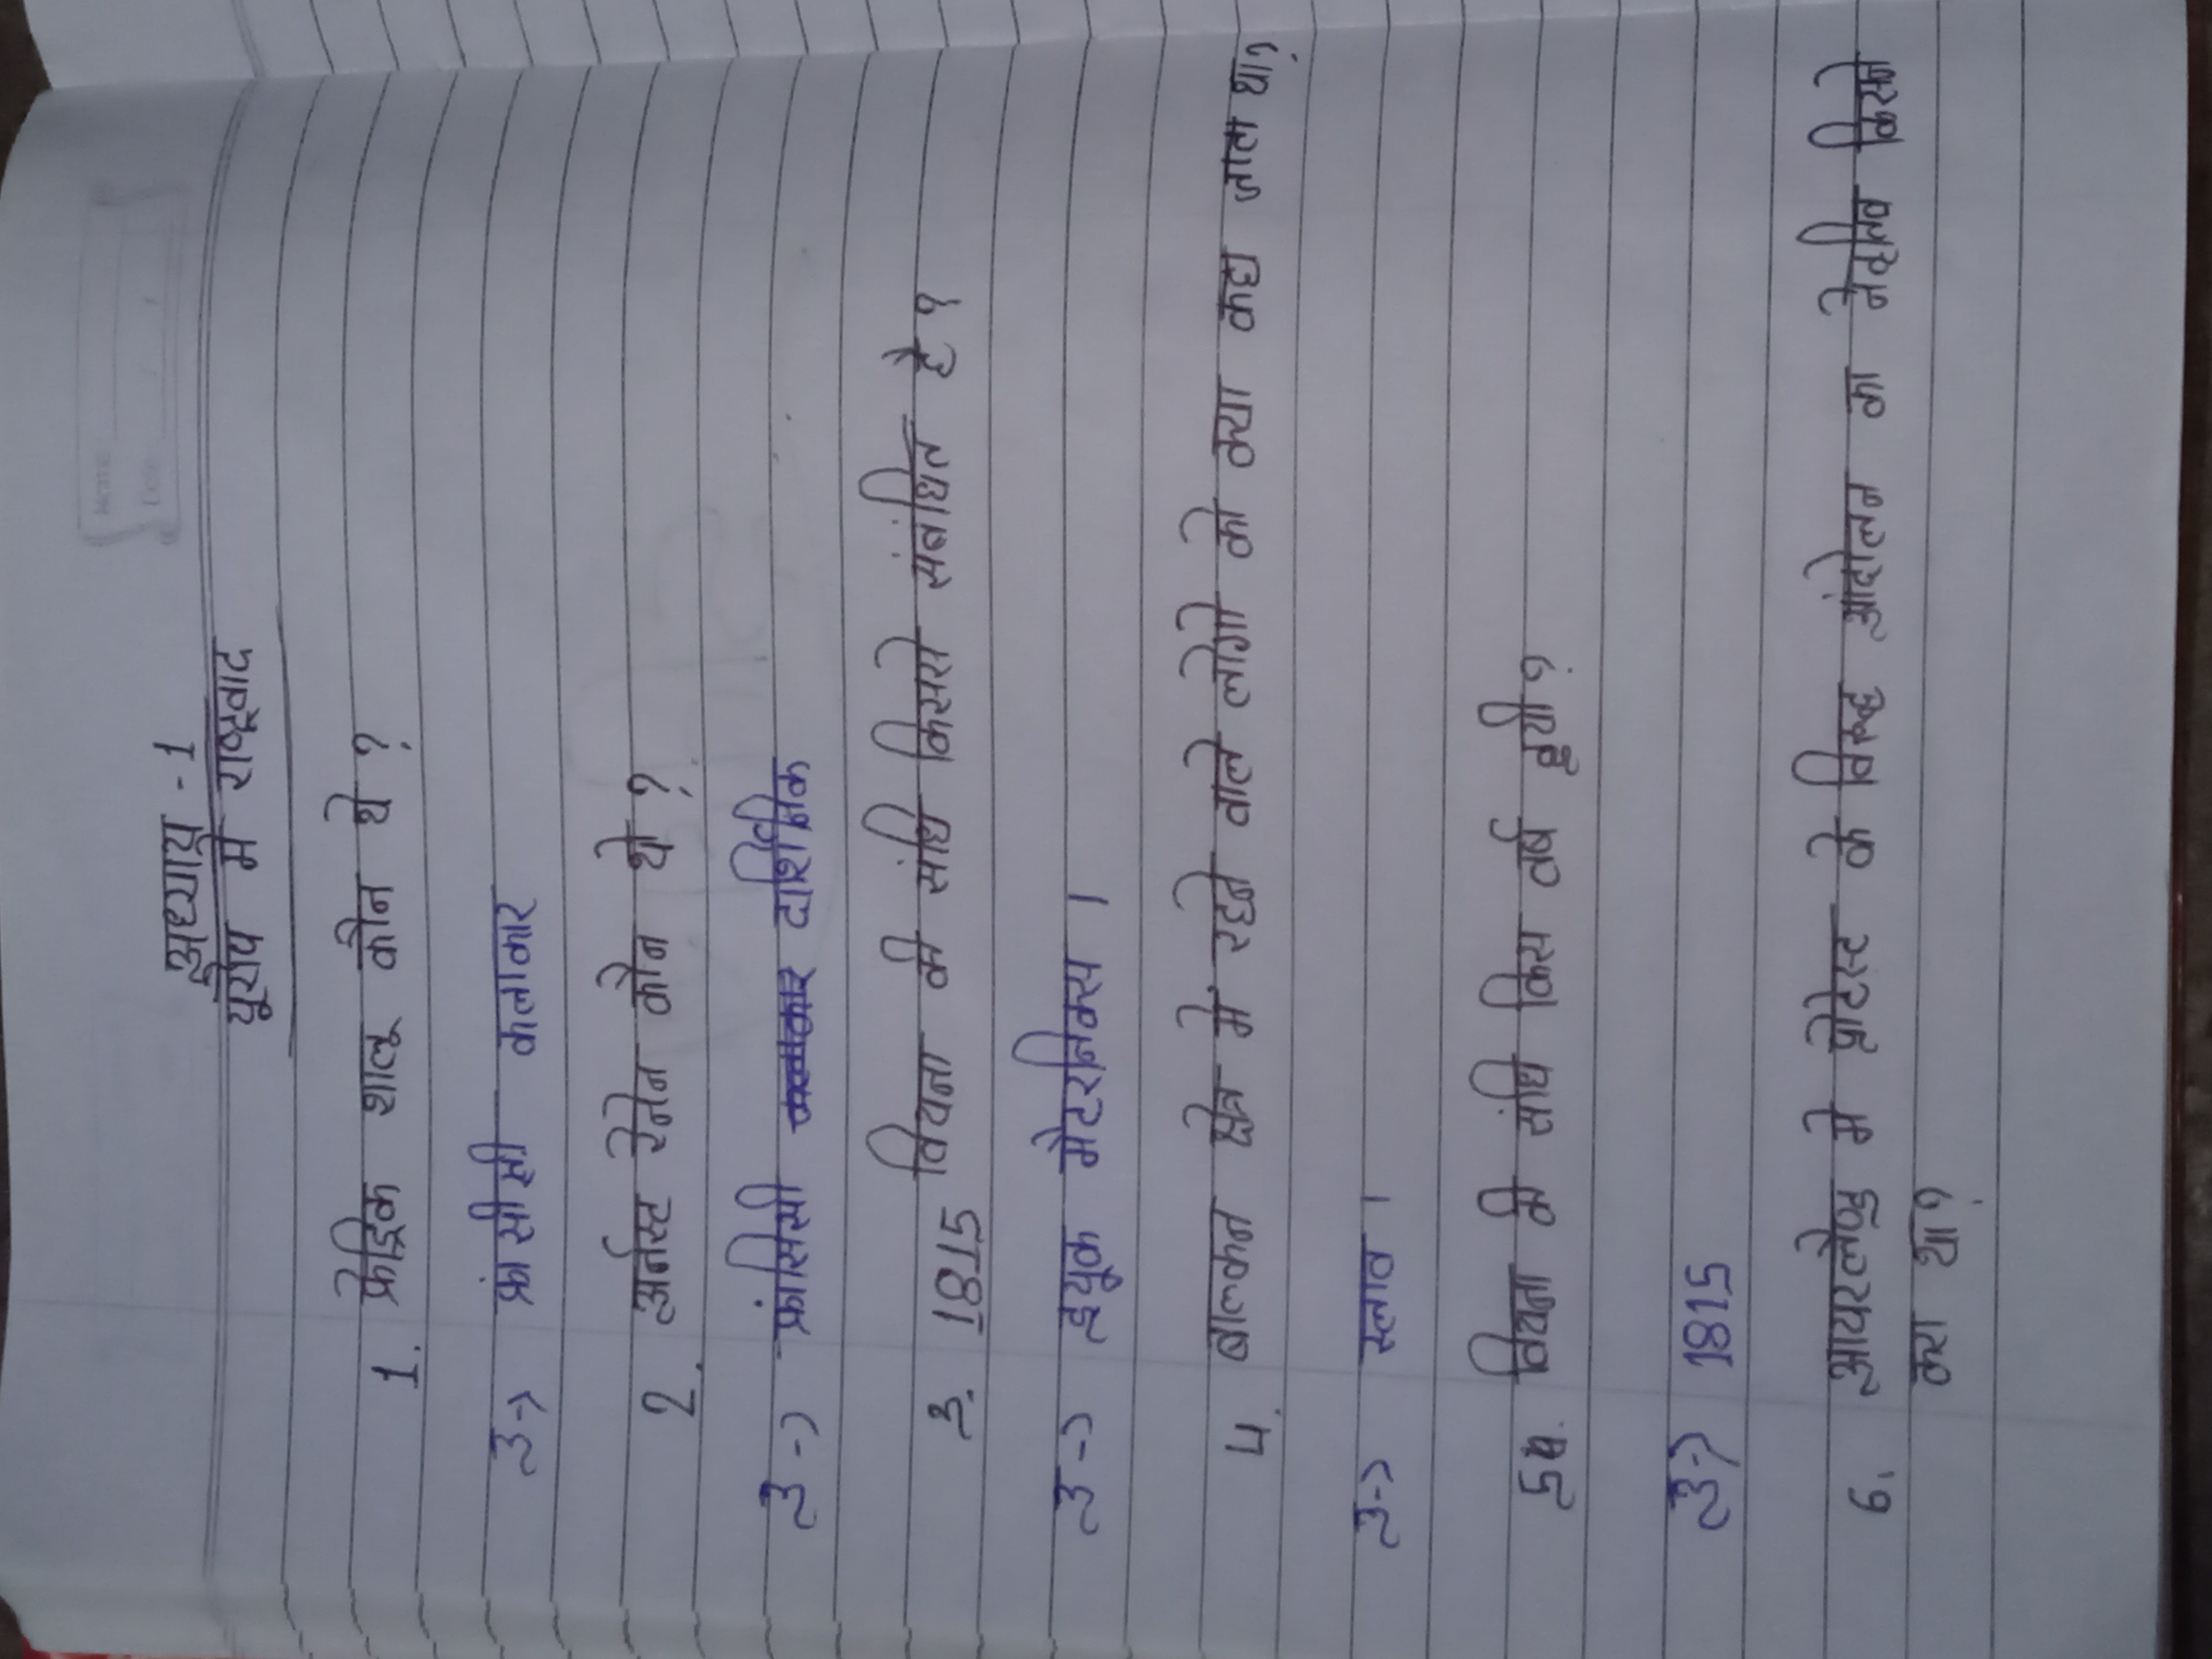 अध्याय - 1
यूरोप में राष्ट्रवाद
1. फ्रेड्रिक शालू कौन थे ?
उ-> फ्रांसीसी कलाकार
2. अर्नस्ट रेनेन कौन थे ?
उ-> फ्रांसिसी दार्शिनिक
3. 1815 वियना की संधि किससे संबंधित है ?
उ-> ड्यूक मैटरनिक्स ।
4. बाल्कन क्षेत्र में रहने वाले लोगो को क्या कहा जाता था?
उ-> स्लाव ।
5. वियना की संधि किस वर्ष हुयी ?
उ-> 1815
6. आयरलैण्ड मे प्रोटेस्ट के विरुद्ध आंदोलन का किसने
करा था ?